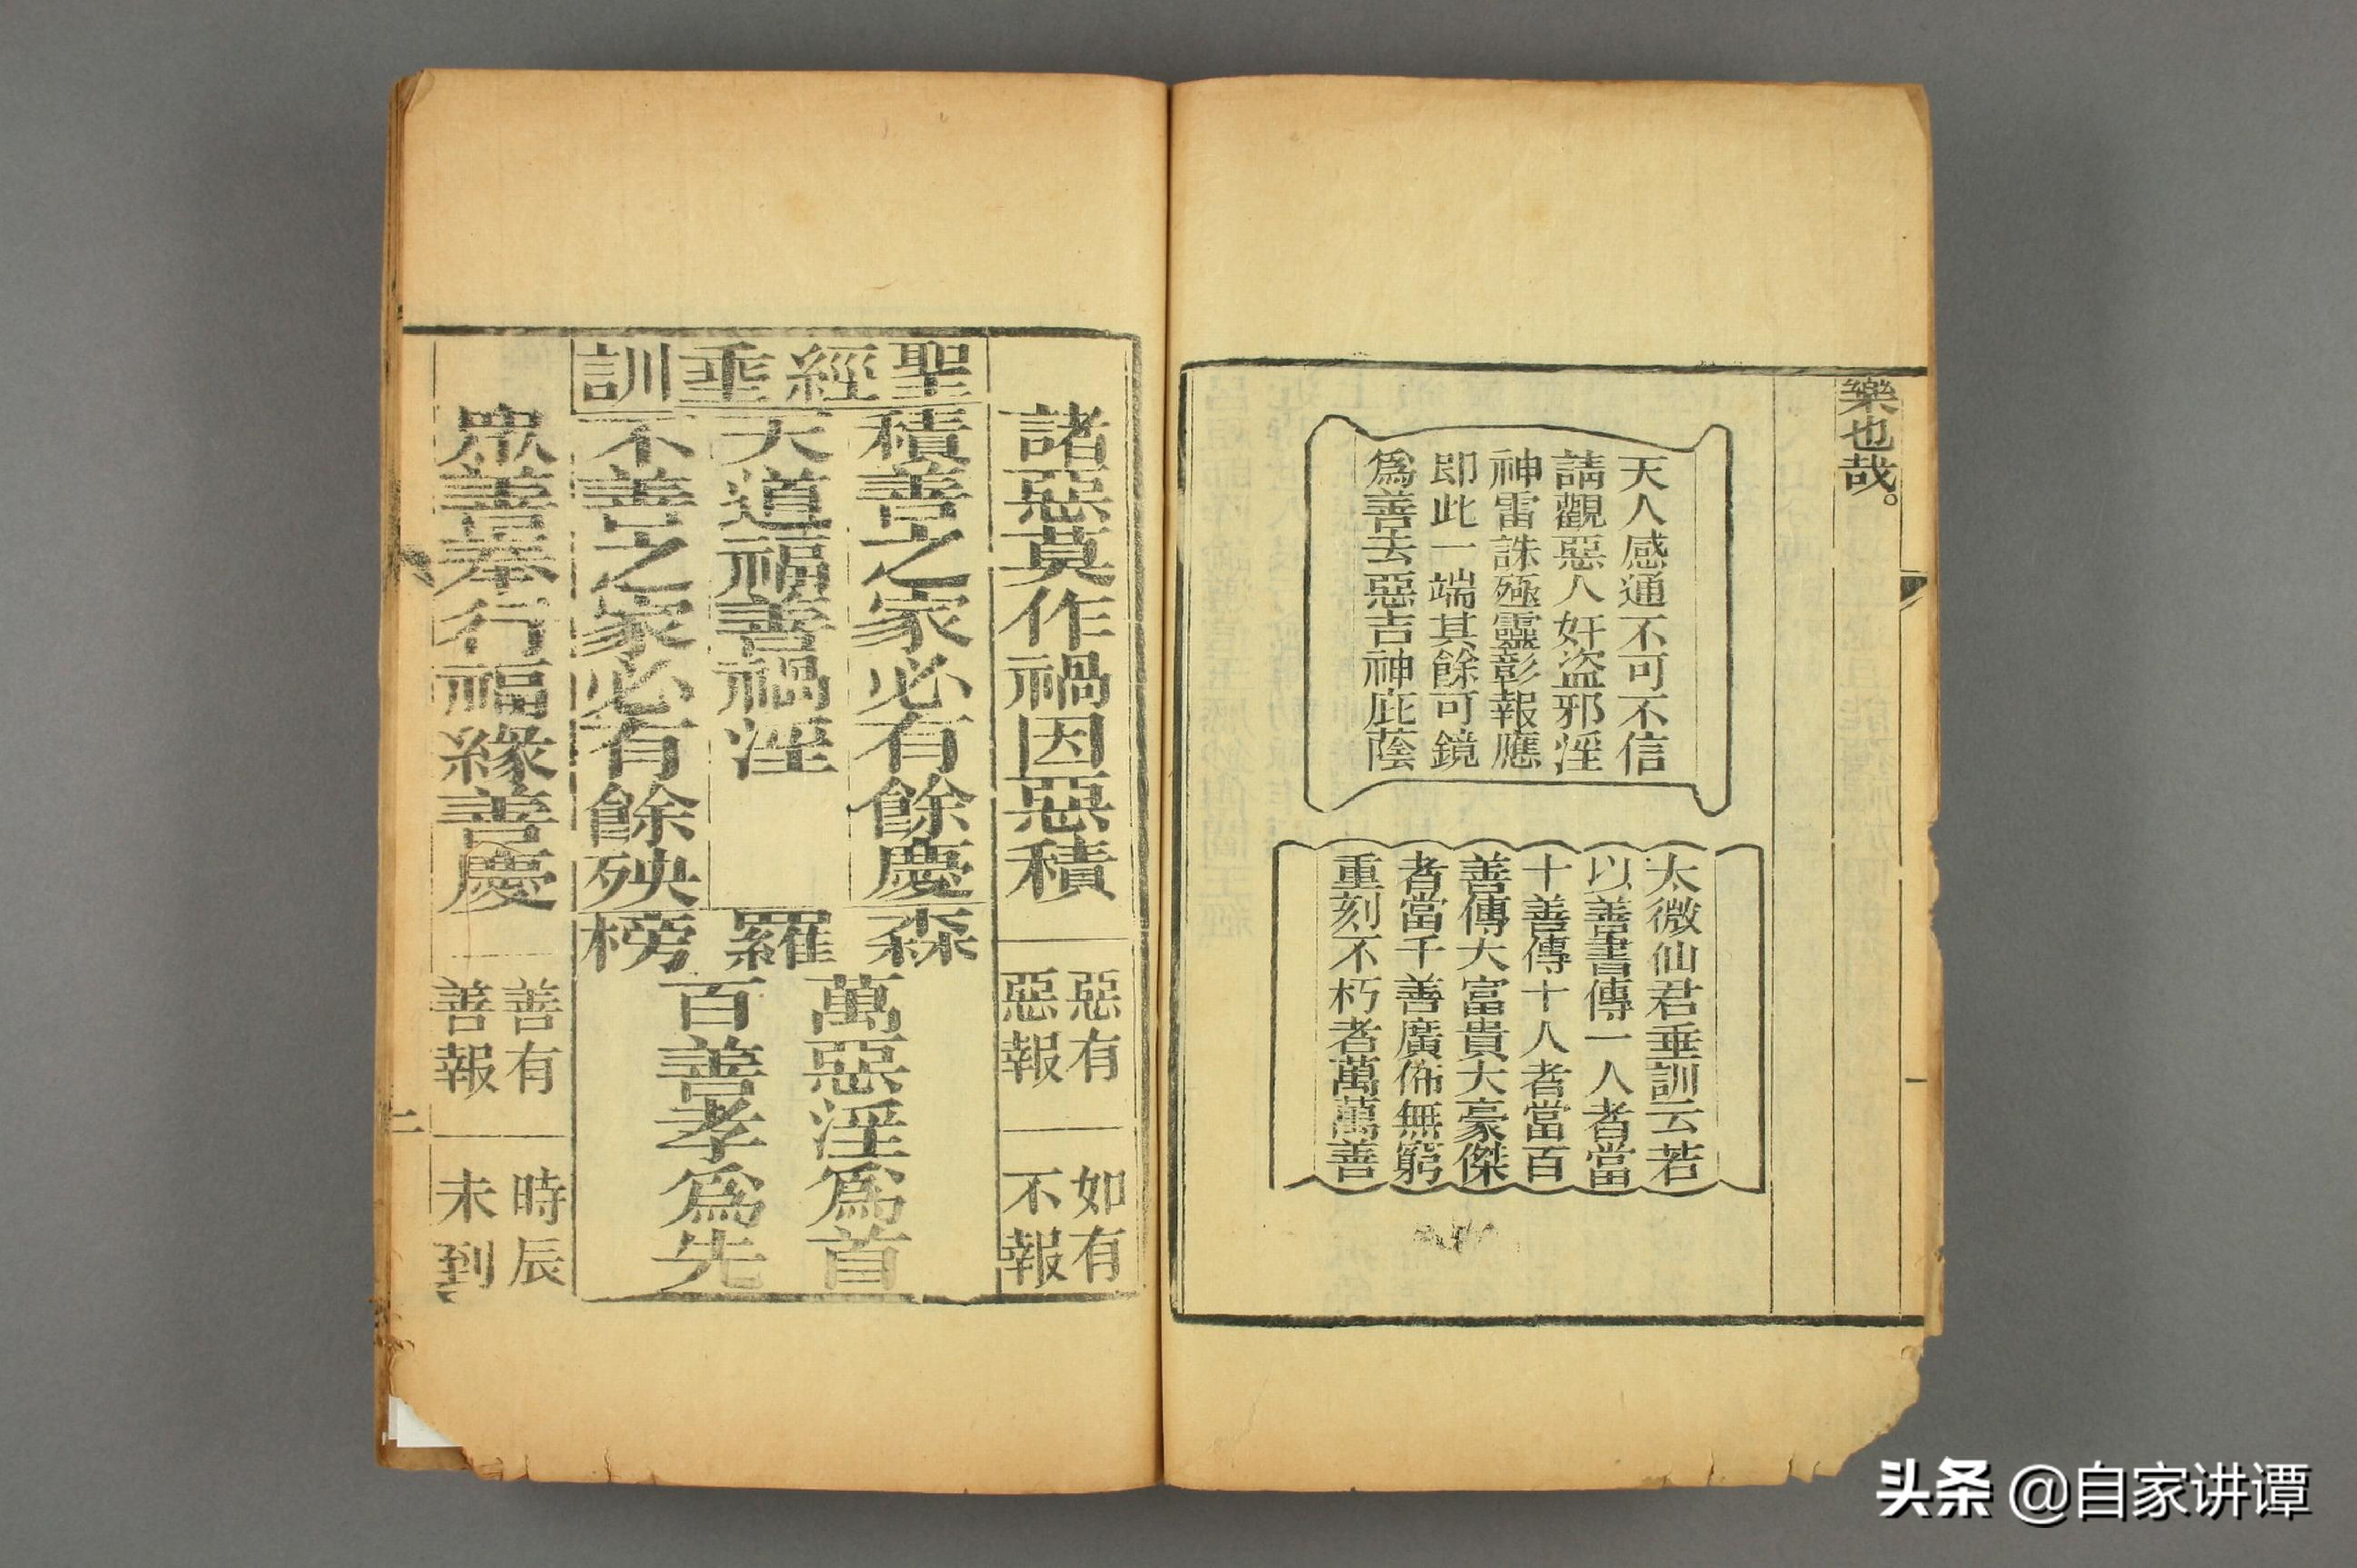 樂也哉。
一
天人感通不可不信
請觀惡人奸盜邪淫
神雷誅殛靈彰報應
即此一端其餘可鏡
爲善去惡吉神庇蔭
太微仙君垂訓云若
以善書傳一人者當
十善傳十人者當百
善傳大富貴大豪傑
者當千善廣佈無窮
重刻不朽者萬萬善
諸惡莫作禍因惡積
惡有
惡報
如有
不報
聖經垂訓
積善之家必有餘慶
天道福善禍淫
不善之家必有餘殃
森羅榜
萬惡淫爲首
百善孝爲先
眾善奉行福緣善慶
善有
善報
時辰
未到
二
头条 @自家讲谭